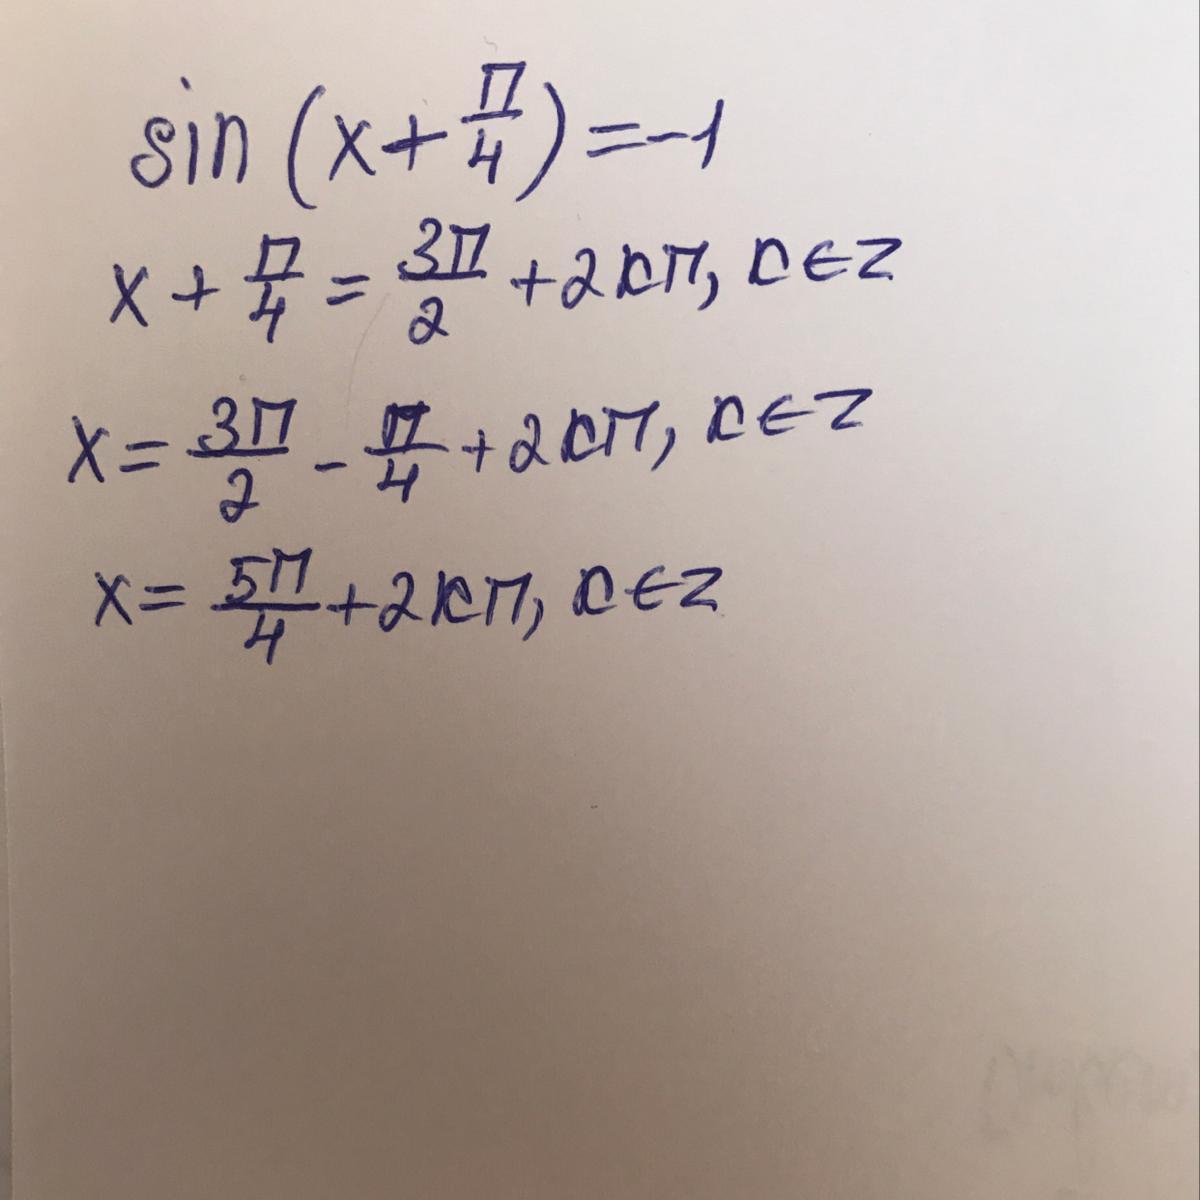 sin (x + π/4) = -1
x + π/4 = 3π/2 + 2kπ, k ∈ Z
x = 3π/2 - π/4 + 2kπ, k ∈ Z
x = 5π/4 + 2kπ, k ∈ Z